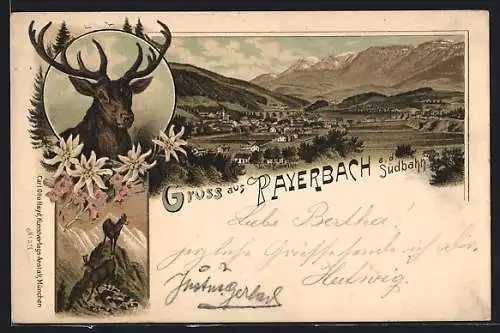 Gruss aus PAYERBACH a. d. Südbahn
Liebe Bertha!
herzliche Grüsse sende ich dir
Hedwig.
Carl Otto Hayd, Kunstverlags-Anstalt, München